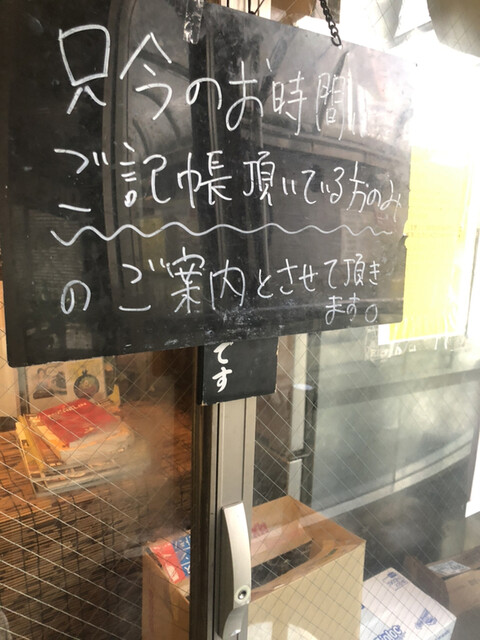 只今のお時間は
ご記帳頂いている方のみ
のご案内とさせて頂き
ます。
です